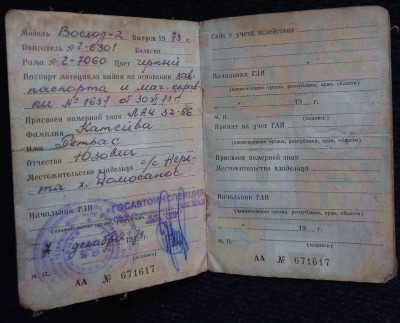 Модель Восход-2 Выпуск 1973 г.
Двигатель № 2-6301 Коляска
Рама № 2-7060 Цвет чёрный
Паспорт мотоцикла выдан на основании зав.
паспорта и маг. справ
ки № 1637 от 30 XI 73 г.
Присвоен номерной знак ЛАЧ 52-56
Фамилия
Имя Петрас
Отчество Юзо
Местожительство владельца с/с
х.
Начальник ГАИ
ГОСАВТОИНСПЕКЦИЯ
декабря
М. П. (подпись)
АА № 671617
Снят с учета вследствие
Начальник ГАИ
(наименование органа, республики, края, области)
19 г.
М. П. (подпись)
Принят на учет ГАИ
(наименование органа, республики, края, области)
Присвоен номерной знак
Местожительство владельца
Начальник ГАИ
(наименование органа, республики, края, области)
19 г.
М. П. (подпись)
АА № 671617